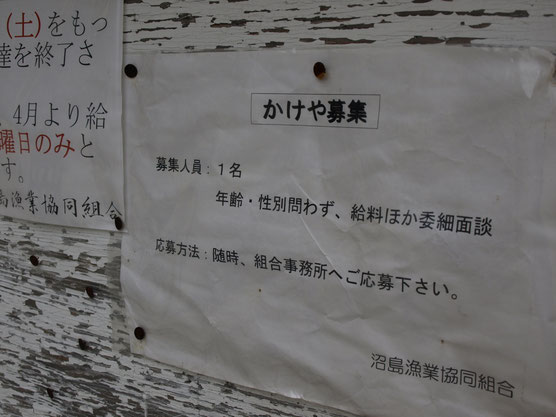 (土)をもっ
達を終了さ
、4月より給
曜日のみと
す。
島漁業協同組合
かけや募集
募集人員：１名
年齢・性別問わず、給料ほか委細面談
応募方法：随時、組合事務所へご応募下さい。
沼島漁業協同組合